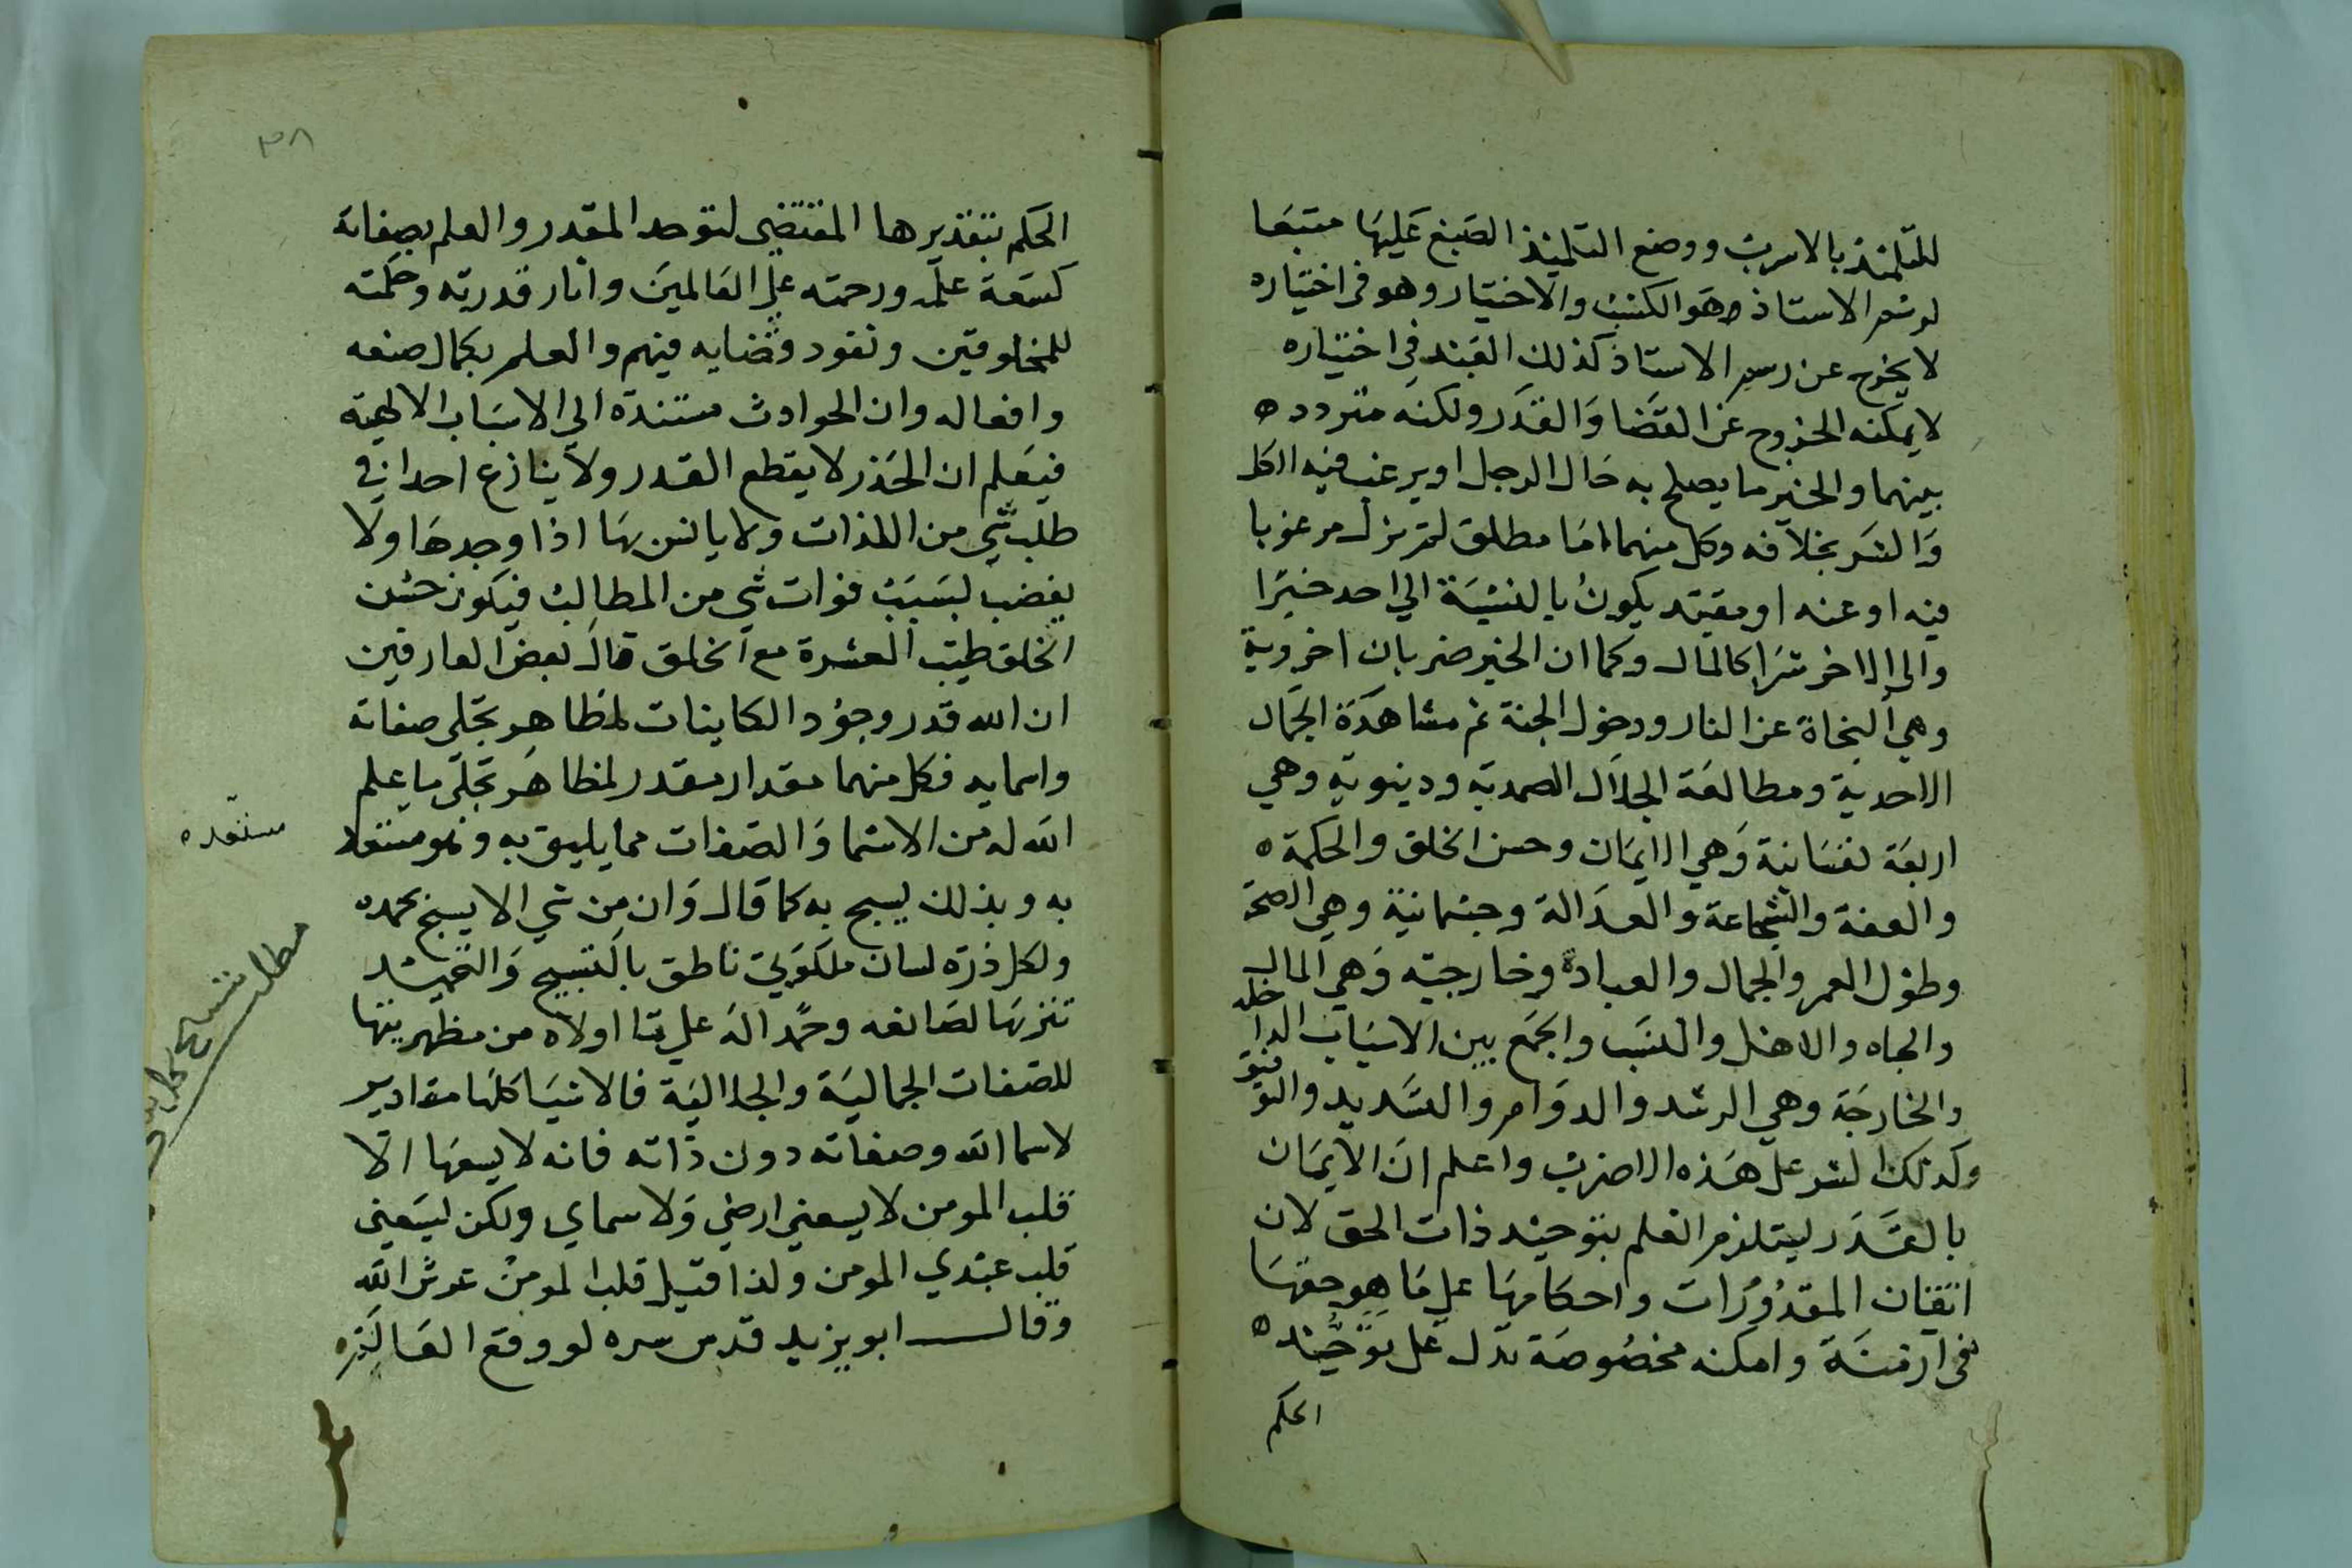 للتلميذ بالاسرب ووضع التلميذ الصبغ عليها متبعا
لرسم الاستاذ وهو الكسب والاختيار وهو في اختياره
لا يخرج عن رسم الاستاذ كذلك العبد في اختياره
لا يمكنه الخروج عن القضا والقدر ولكنه متردد ه
بينهما والخير ما يصلح به حال الرجل او يرغب فيه الكل
والشر بخلافه وكل منهما اما مطلق لم يزل مرغوبا
فيه او عنه او مقيد يكون بالنسبة الي احد خيرا
والى الاخر شرا كالمال وكما ان الخير ضربان اخروية
وهي النجاة عن النار ودخول الجنة ثم مشاهدة الجمال
الاحدية ومطالعة الجلال الصمدية ودنيوية وهي
اربعة نفسانية وهي الايمان وحسن الخلق والحكمة ه
والعفة والشجاعة والعدالة وجسمانية وهي الصحة
وطول العمر والجمال والعبادة وخارجية وهي المال
والجاه والاهل والنسب والجمع بين الاسباب الداخلة
والخارجة وهي الرشد والدوام والتسديد والتوفيق
وكذلك الشر على هذه الاضرب واعلم ان الايمان
بالقدر يستلزم العلم بتوحيد ذات الحق لان
اتقان المقدورات واحكامها على ما هو حقها
في ازمنة وامكنه مخصوصة تدل على توحيد ه
الحكم
٣٨
الحكم بتقديرها المقتضي لتوحد المقدر والعلم بصفاته
كسعة علمه ورحمته على العالمين واثار قدرته وحكمته
للمخلوقين ونفود قضايه فيهم والعلم بكمال صنعه
وافعاله وان الحوادث مستندة الي الاسباب الالهية
فيعلم ان الحذر لا يقطع القدر ولا ينازع احدا في
طلب شي من اللذات ولا يانس بها اذا وجدها ولا
يغضب بسبب فوات شي من المطالب فيكون حسن
الخلق طيب العشرة مع الخلق قال بعض العارفين
ان الله قدر وجود الكاينات لمظاهر تجلى صفاته
واسمايه فكل منهما مقدار مقدر لمظاهر تجلى ما علم
الله له من الاسما والصفات مما يليق به وهو مستعد
مستعده
به وبذلك يسبح به كما قال وان من شي الا يسبح بحمده
ولكل ذرة لسان ملكوتي ناطق بالتسبيح والتحميد
تنزيها لصانعه وحمدا له على ما اولاه من مظهريتها
مطلب تسبيح كل
للصفات الجمالية والجلالية فالاشيا كلها مقادير
لاسما الله وصفاته دون ذاته فانه لا يسعها الا
قلب المومن لا يسعني ارضي ولا سماي ولكن يسعني
قلب عبدي المومن ولذا قيل قلب المومن عرش الله
وقال ابو يزيد قدس سره لو وقع العالم